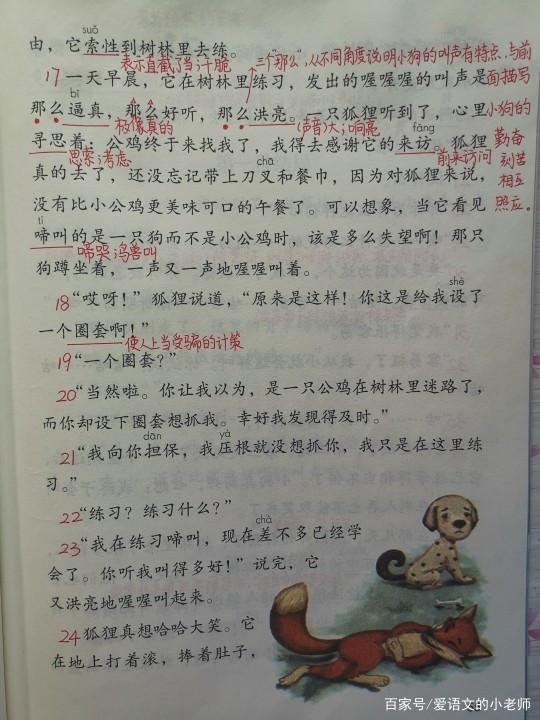 suǒ
由，它索性到树林里去练。
表示直截了当；干脆
三个“那么”，从不同角度说明小狗的叫声有特点，与前面描写小狗的勤奋刻苦相互照应。
17 一天早晨，它在树林里练习，发出的喔喔喔的叫声是
bī
那么逼真，那么好听，那么洪亮。一只狐狸听到了，心里
极像真的
（声音）大；响亮
fǎng
寻思着：公鸡终于来找我了，我得去感谢它的来访。狐狸
思索；考虑
前来访问
chā
真的去了，还没忘记带上刀叉和餐巾，因为对狐狸来说，
没有比小公鸡更美味可口的午餐了。可以想象，当它看见
tí
啼叫的是一只狗而不是小公鸡时，该是多么失望啊！那只
啼哭；鸟兽叫
狗蹲坐着，一声又一声地喔喔叫着。
shè
18 “哎呀！”狐狸说道，“原来是这样！你这是给我设了
一个圈套啊！”
使人上当受骗的计策
19 “一个圈套？”
20 “当然啦。你让我以为，是一只公鸡在树林里迷路了，
而你却设下圈套想抓我。幸好我发现得及时。”
dān yà
21 “我向你担保，我压根就没想抓你，我只是在这里练
习。”
22 “练习？练习什么？”
chà
23 “我在练习啼叫，现在差不多已经学
会了。你听我叫得多好！”说完，它
又洪亮地喔喔叫起来。
24 狐狸真想哈哈大笑。它
在地上打着滚，捧着肚子，
百家号/爱语文的小老师